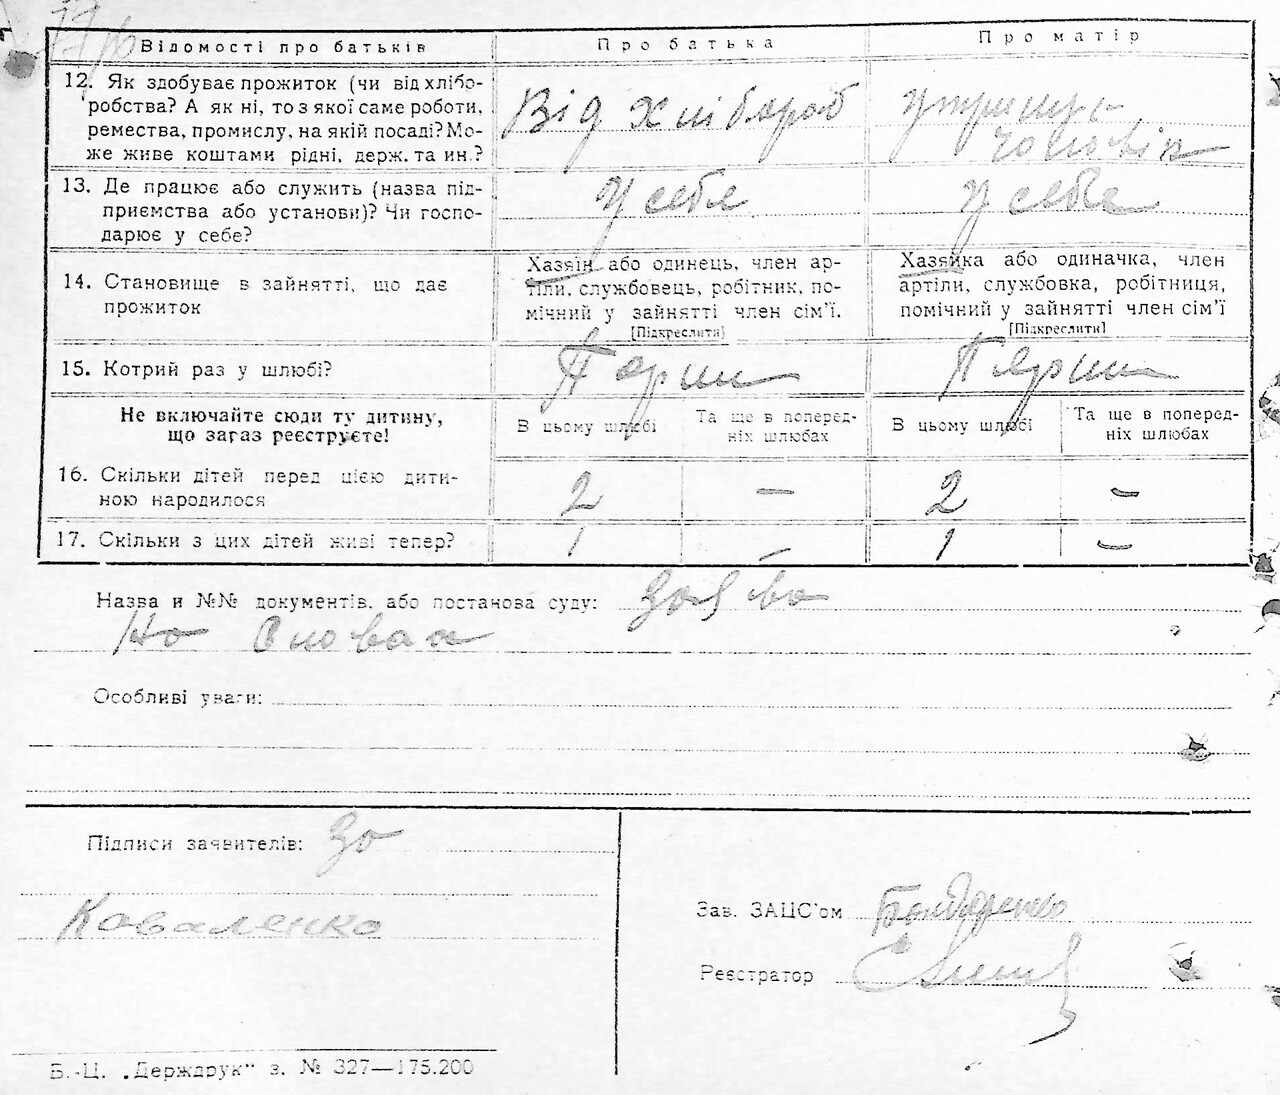 Відомості про батьків
Про батька
Про матір
12. Як здобуває прожиток (чи від хлібо-
робства? А як ні, то з якої саме роботи,
ремества, промислу, на якій посаді? Мо-
же живе коштами рідні, держ. та ин.?
Від хлібороб
утриму.
чоловік
13. Де працює або служить (назва під-
приємства або установи)? Чи госпо-
дарює у себе?
У себе
У себе
14. Становище в зайнятті, що дає
прожиток
Хазяїн або одинець, член ар-
тіли, службовець, робітник, по-
мічний у зайнятті член сім'ї.
[Підкреслити]
Хазяйка або одиначка, член
артіли, службовка, робітниця,
помічний у зайнятті член сім'ї
[Підкреслити]
15. Котрий раз у шлюбі?
Перши
Перши
Не включайте сюди ту дитину,
що зараз реєструєте!
В цьому шлюбі
Та ще в поперед-
ніх шлюбах
В цьому шлюбі
Та ще в поперед-
ніх шлюбах
16. Скільки дітей перед цією дити-
ною народилося
2 — 2 —
17. Скільки з цих дітей живі тепер?
1 — 1 —
Назва и №№ документів, або постанова суду: заява
на словах
Особливі уваги:
Підписи заявителів: За
Коваленко
Зав. ЗАЦС'ом Бондаренко
Реєстратор
Б.-Ц. „Держдрук" з. № 327—175.200